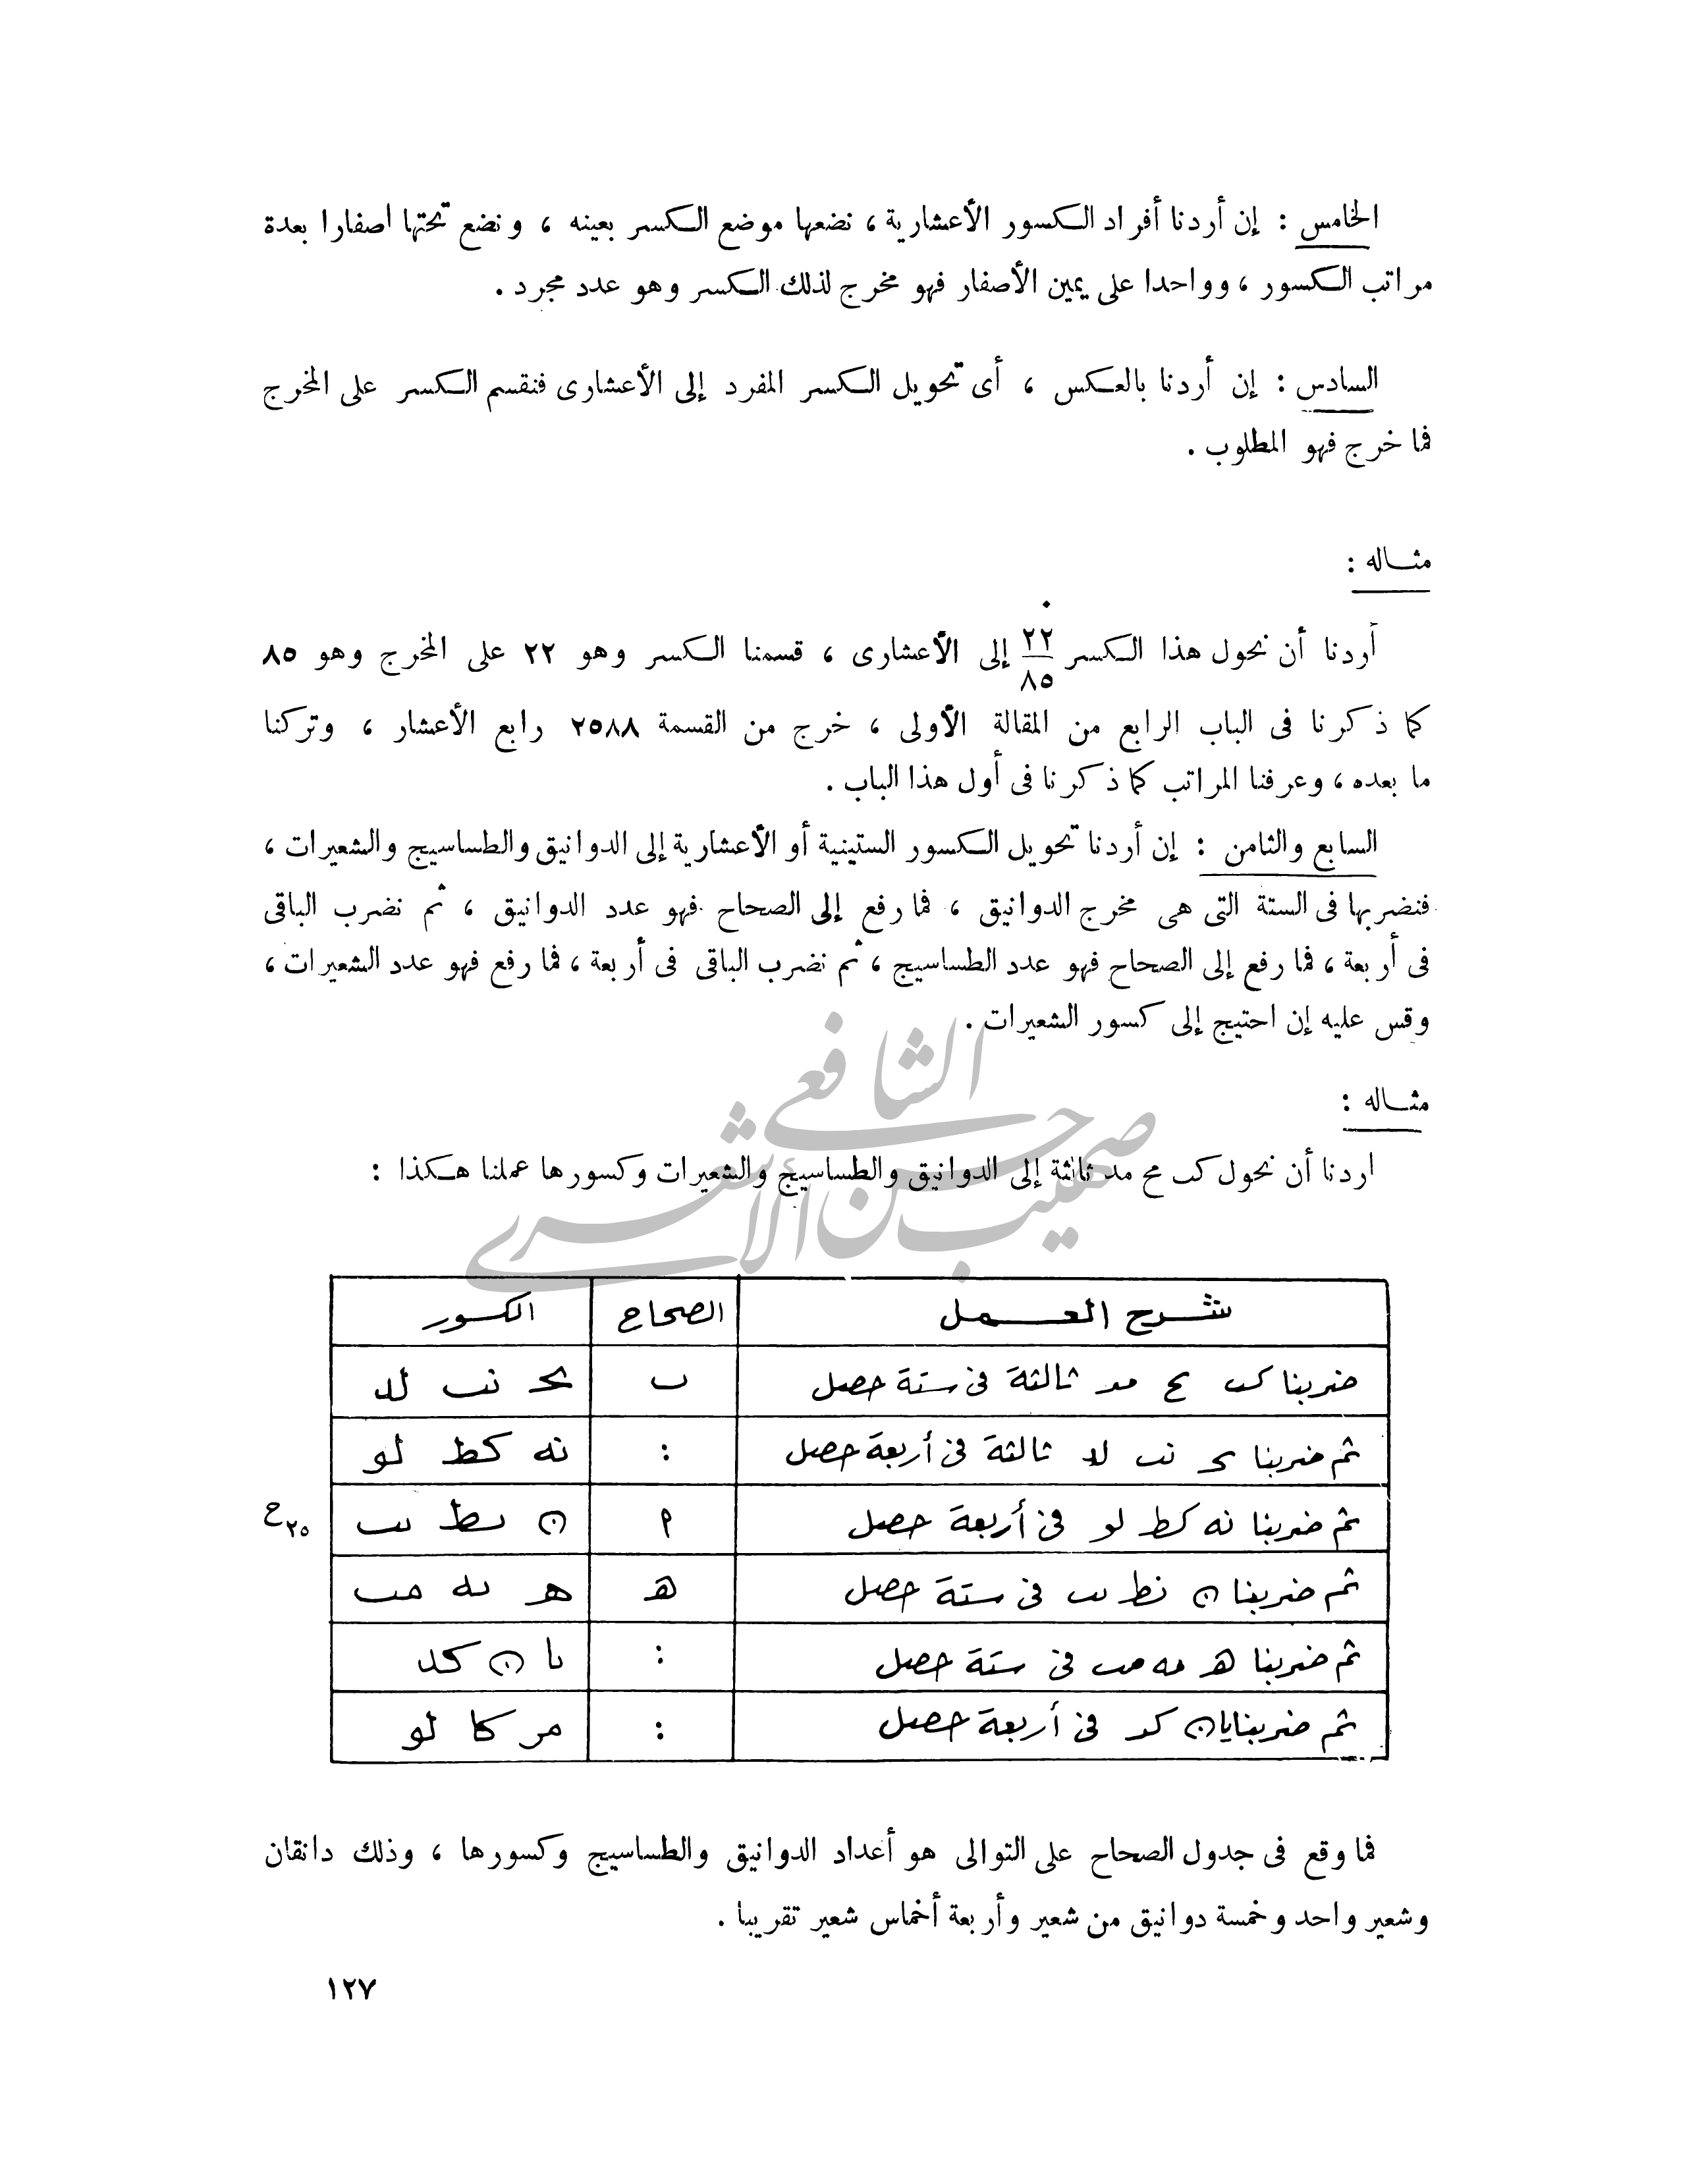 الخامس : إن أردنا أفراد الكسور الأعشارية ، نضعها موضع الكسر بعينه ، ونضع تحتها اصفارا بعدة
مراتب الكسور ، وواحدا على يمين الأصفار فهو مخرج لذلك الكسر وهو عدد مجرد .
السادس : إن أردنا بالعكس ، أى تحويل الكسر المفرد إلى الأعشارى فنقسم الكسر على المخرج
فما خرج فهو المطلوب .
مثاله :
أردنا أن نحول هذا الكسر ٠ ٢٢/٨٥ إلى الأعشارى ، قسمنا الكسر وهو ٢٢ على المخرج وهو ٨٥
كما ذكرنا فى الباب الرابع من المقالة الأولى ، خرج من القسمة ٢٥٨٨ رابع الأعشار ، وتركنا
ما بعده ، وعرفنا المراتب كما ذكرنا فى أول هذا الباب .
السابع والثامن : إن أردنا تحويل الكسور الستينية أو الأعشارية إلى الدوانيق والطساسيج والشعيرات ،
فنضربها فى الستة التى هى مخرج الدوانيق ، فما رفع إلى الصحاح فهو عدد الدوانيق ، ثم نضرب الباقى
فى أربعة ، فما رفع إلى الصحاح فهو عدد الطساسيج ، ثم نضرب الباقى فى أربعة ، فما رفع فهو عدد الشعيرات ،
وقس عليه إن احتيج إلى كسور الشعيرات .
مثاله :
اردنا أن نحول كب مح مد ثالثة إلى الدوانيق والطساسيج والشعيرات وكسورها عملنا هكذا :
شرح العمل الصحاح الكسور
ضربنا كب مح مد ثالثة فى ستة حصل ب يح نب لد
ثم ضربنا يح نب لد ثالثة فى أربعة حصل : نه كط لو
ثم ضربنا نه كط لو فى أربعة حصل ا ن نط نب ح٢٥
ثم ضربنا ن نط نب فى ستة حصل ه ه نه مب
ثم ضربنا ه نه مب فى ستة حصل : يا ن كد
ثم ضربنا يا ن كد فى أربعة حصل : مر كا لو
فما وقع فى جدول الصحاح على التوالى هو أعداد الدوانيق والطساسيج وكسورها ، وذلك دانقان
وشعير واحد وخمسة دوانيق من شعير وأربعة أخماس شعير تقريبا .
١٢٧
صهيب حسن الشافعي الأشعري